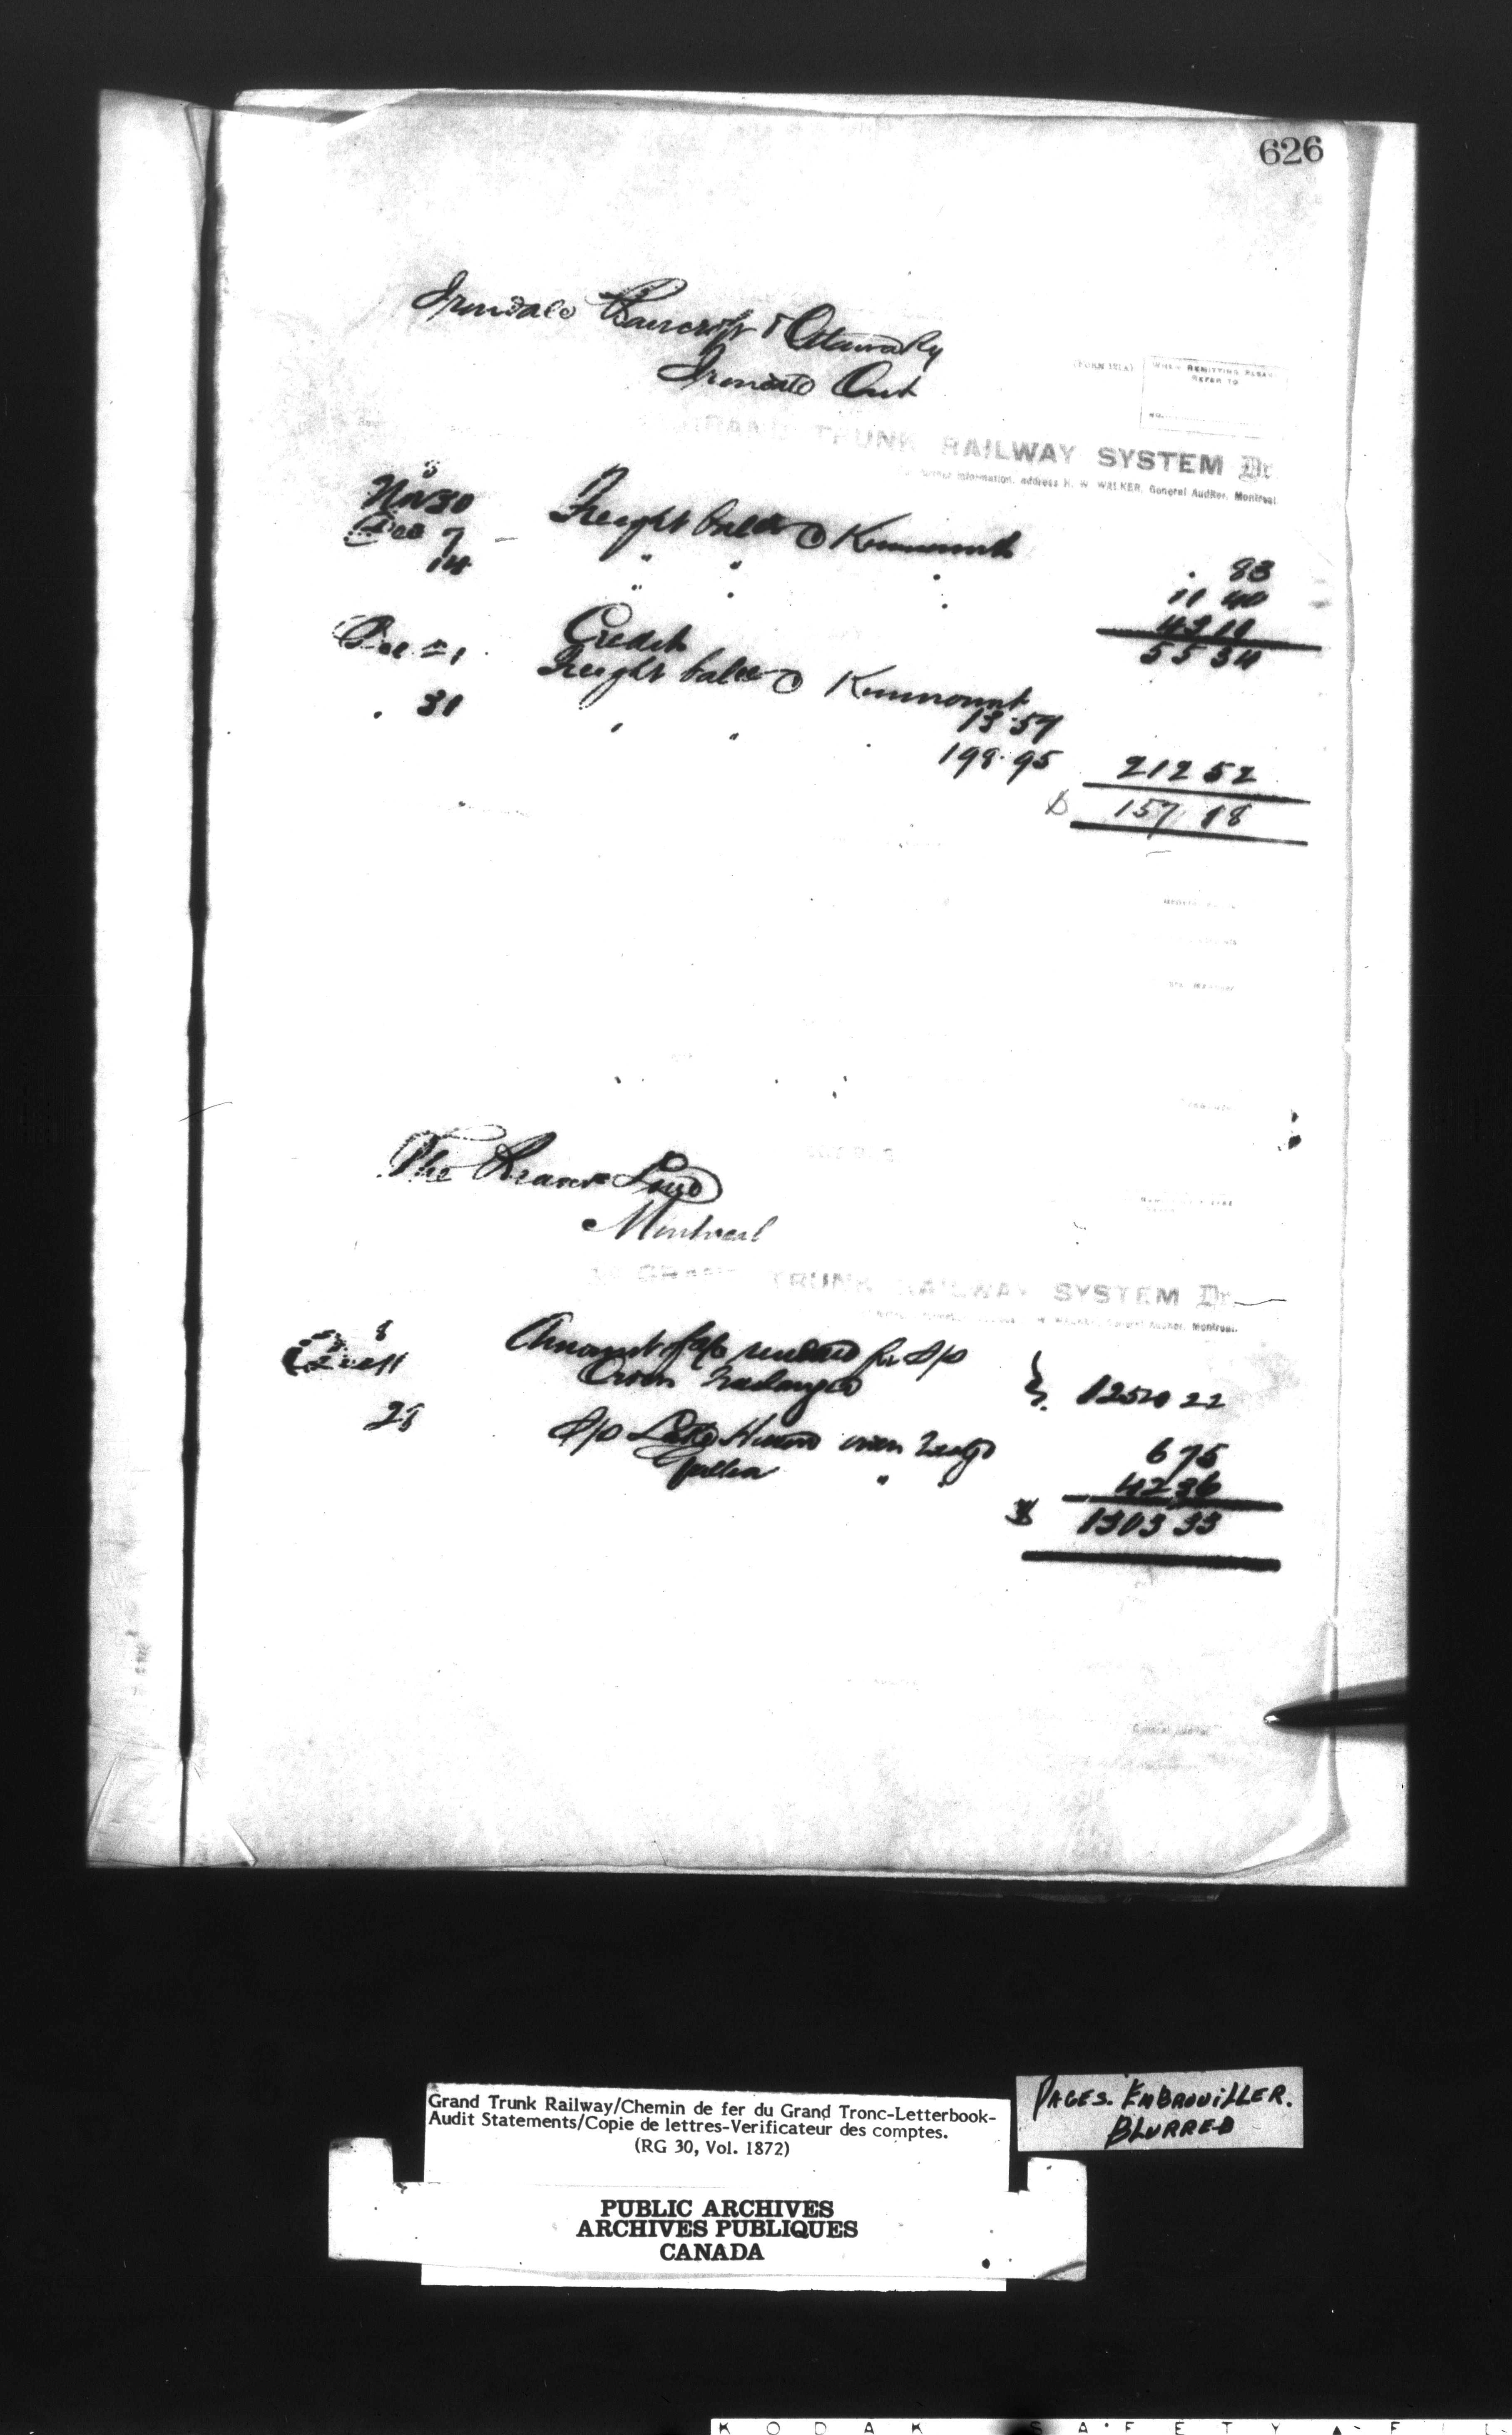 626
Irondale Bancroft & Ottawa Ry
Irondale Ont
(FORM 121A)
WHEN REMITTING PLEASE
REFER TO
NO.
GRAND TRUNK RAILWAY SYSTEM Dr.
information, address H. W. WALKER, General Auditor, Montreal
8
Nov 30 Freight balce @ Kinmount . 83
Dec 7 " " " 11 40
14 " " " 43 11
55 34
Credit
Dec 21 Freight balce @ Kinmount 13.57
" 31 " " " 198.95 212 52
$ 157 18
The Beaver Line
Montreal
GRAND TRUNK RAILWAY SYSTEM Dr.
General Auditor, Montreal.
8
Amount of a/c rendered for S/S 1254 22
28 S/S Lake Huron 6 75
" " 42 36
$ 1303 33
General Auditor
Grand Trunk Railway/Chemin de fer du Grand Tronc-Letterbook-
Audit Statements/Copie de lettres-Verificateur des comptes.
(RG 30, Vol. 1872)
PAGES. EMBROUILLER.
BLURRED
PUBLIC ARCHIVES
ARCHIVES PUBLIQUES
CANADA
KODAK SAFETY FIL